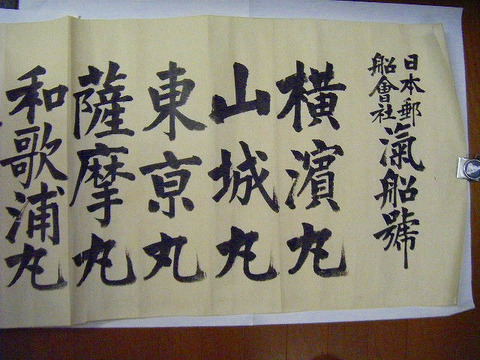 日本郵
船會社
滊船號
横濱丸
山城丸
東京丸
薩摩丸
和歌浦丸